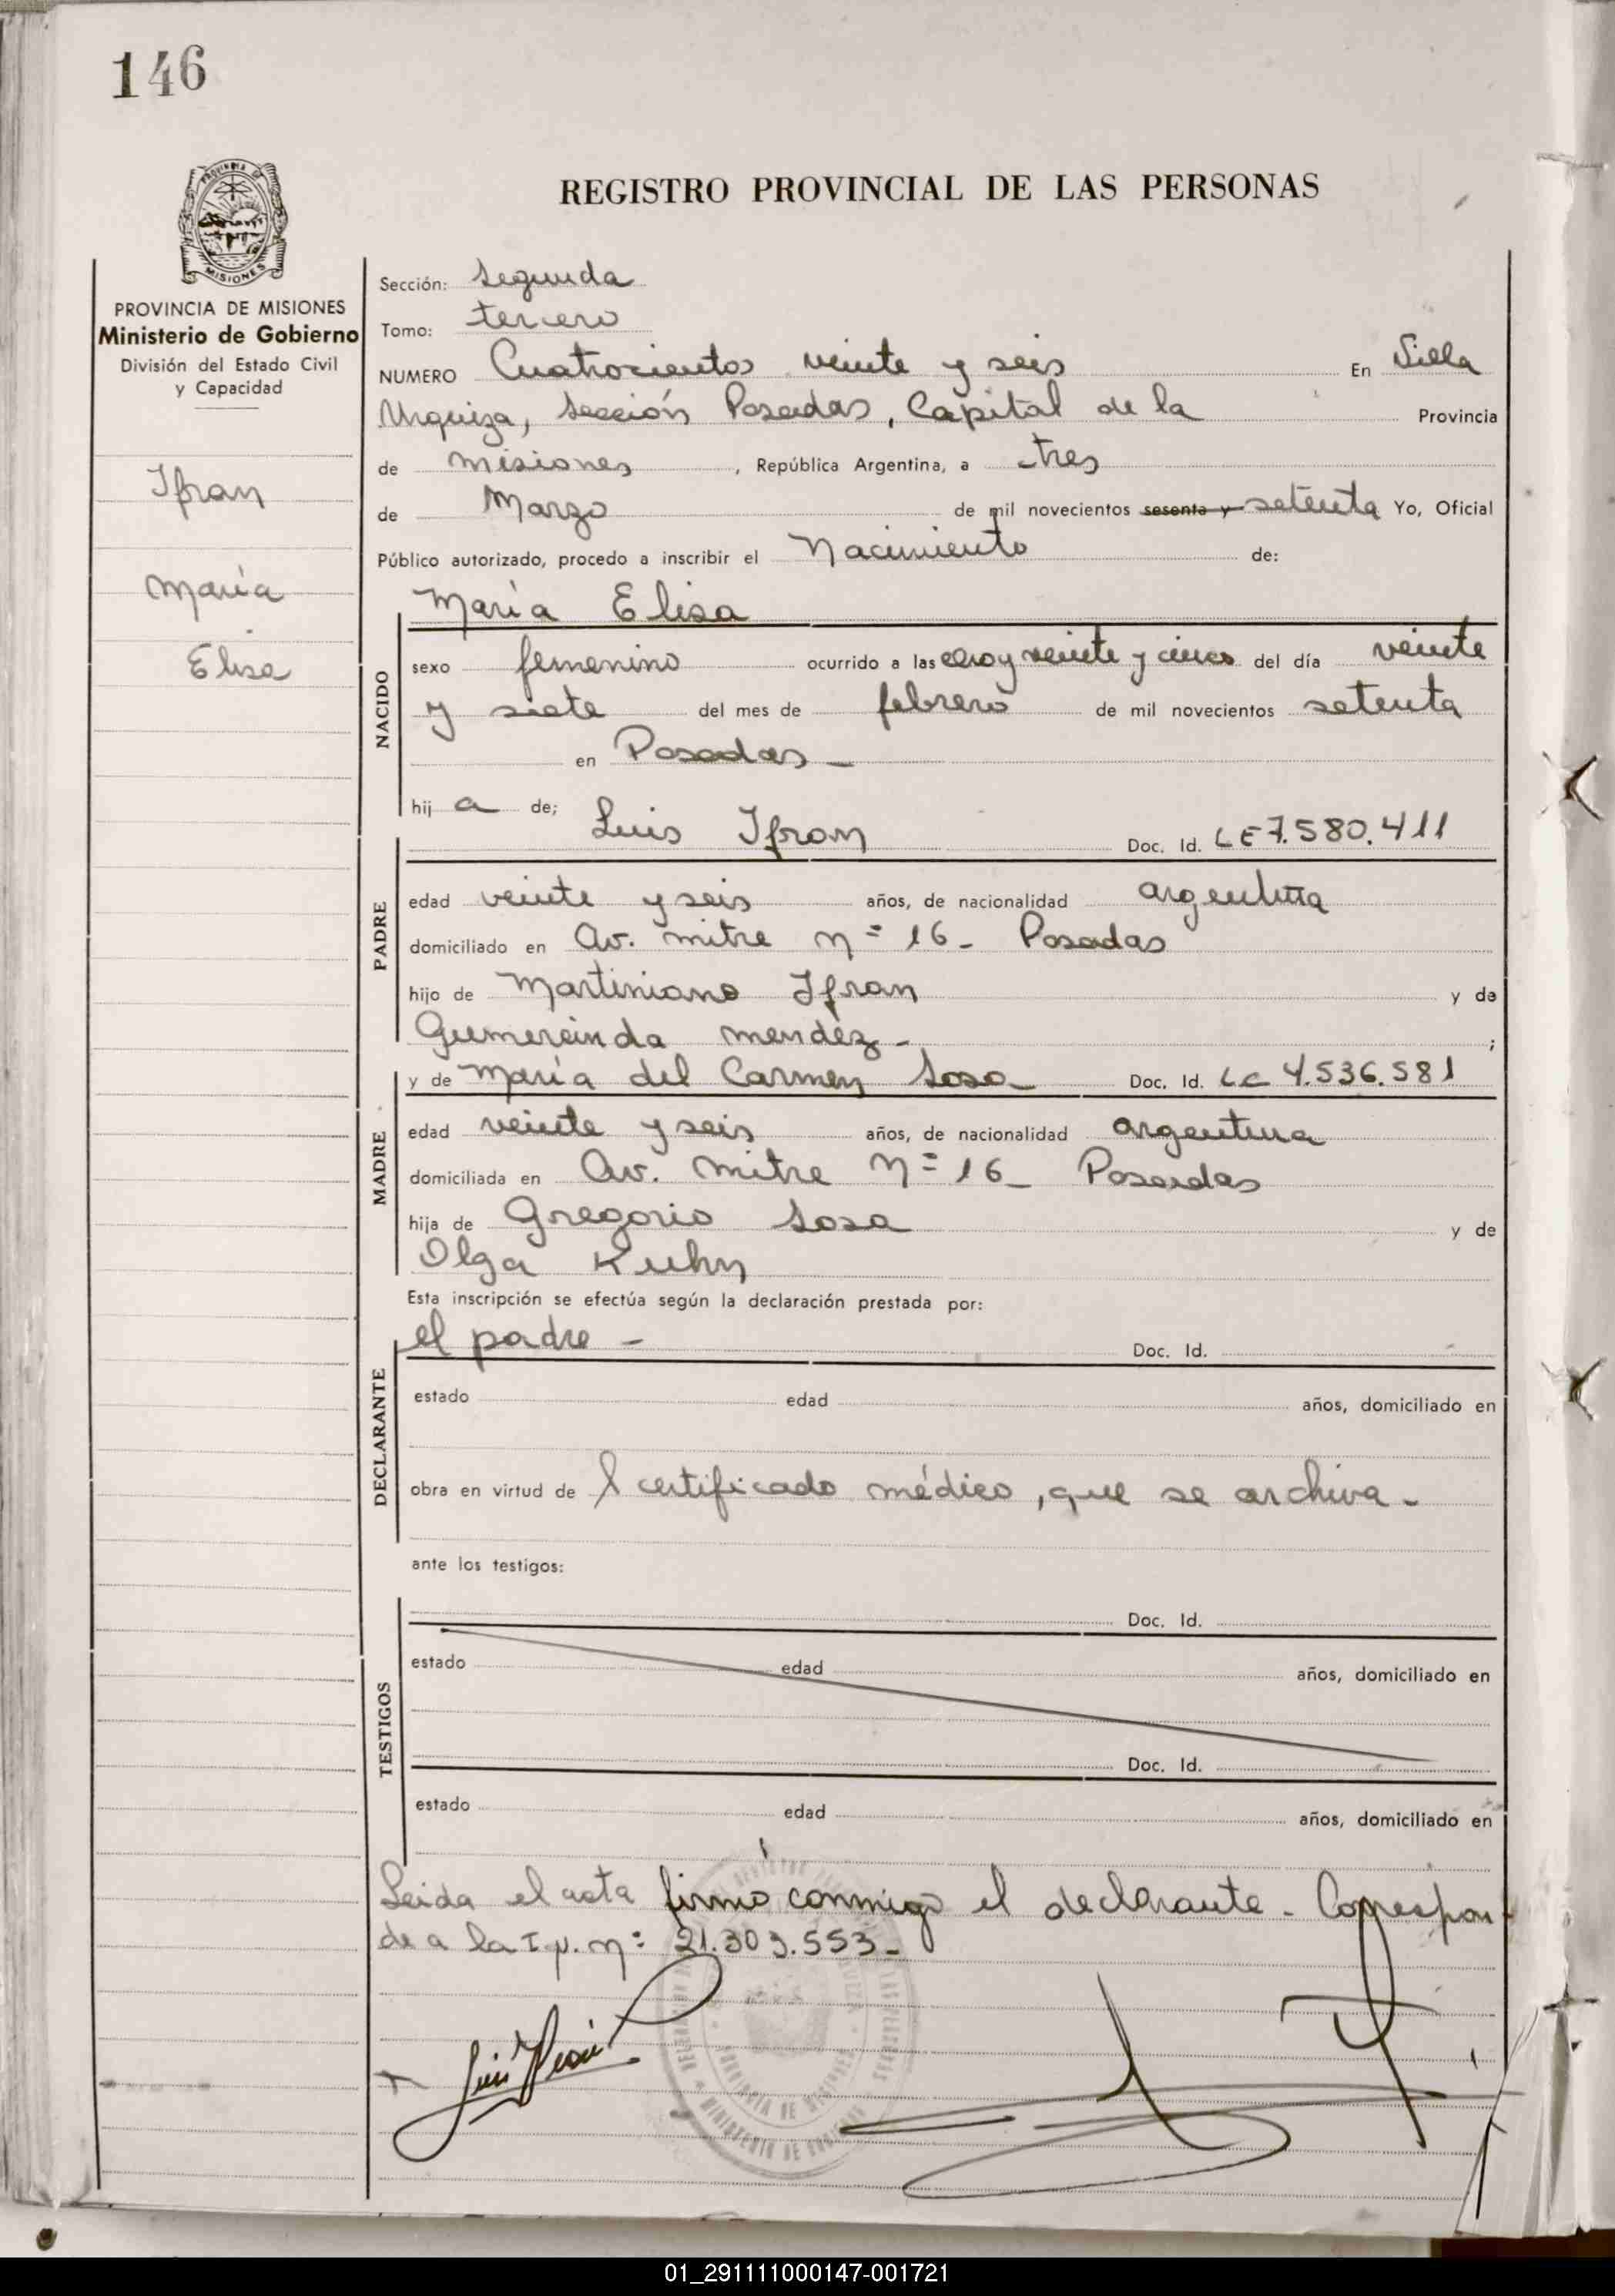 146
PROVINCIA DE MISIONES
Ministerio de Gobierno
División del Estado Civil
y Capacidad
Ifran
María
Elisa
REGISTRO PROVINCIAL DE LAS PERSONAS
Sección: Segunda
Tomo: tercero
NUMERO Cuatrocientos veinte y seis En Villa
Urquiza, Sección Posadas, Capital de la Provincia
de Misiones, República Argentina, a tres
de Marzo de mil novecientos sesenta y setenta Yo, Oficial
Público autorizado, procedo a inscribir el Nacimiento de:
María Elisa
NACIDO
sexo femenino ocurrido a las cero y veinte y cinco del día veinte
y siete del mes de febrero de mil novecientos setenta
en Posadas -
hija de; Luis Ifran Doc. Id. LE 7.580.411
PADRE
edad veinte y seis años, de nacionalidad argentina
domiciliado en Av. Mitre nº 16 - Posadas
hijo de Martiniano Ifran y de
Gumercinda Mendéz - ;
y de María del Carmen Sosa - Doc. Id. LC 4.536.581
MADRE
edad veinte y seis años, de nacionalidad argentina
domiciliada en Av. Mitre Nº 16 - Posadas
hija de Gregorio Sosa y de
Olga Kuhn
Esta inscripción se efectúa según la declaración prestada por:
el padre - Doc. Id.
DECLARANTE
estado edad años, domiciliado en
obra en virtud de l certificado médico, que se archiva -
ante los testigos:
Doc. Id.
TESTIGOS
estado edad años, domiciliado en
Doc. Id.
estado edad años, domiciliado en
Leida el acta firmó conmigo el declarante - Correspon-
de a la T. n. nº 21.303.553 -
01_291111000147-001721